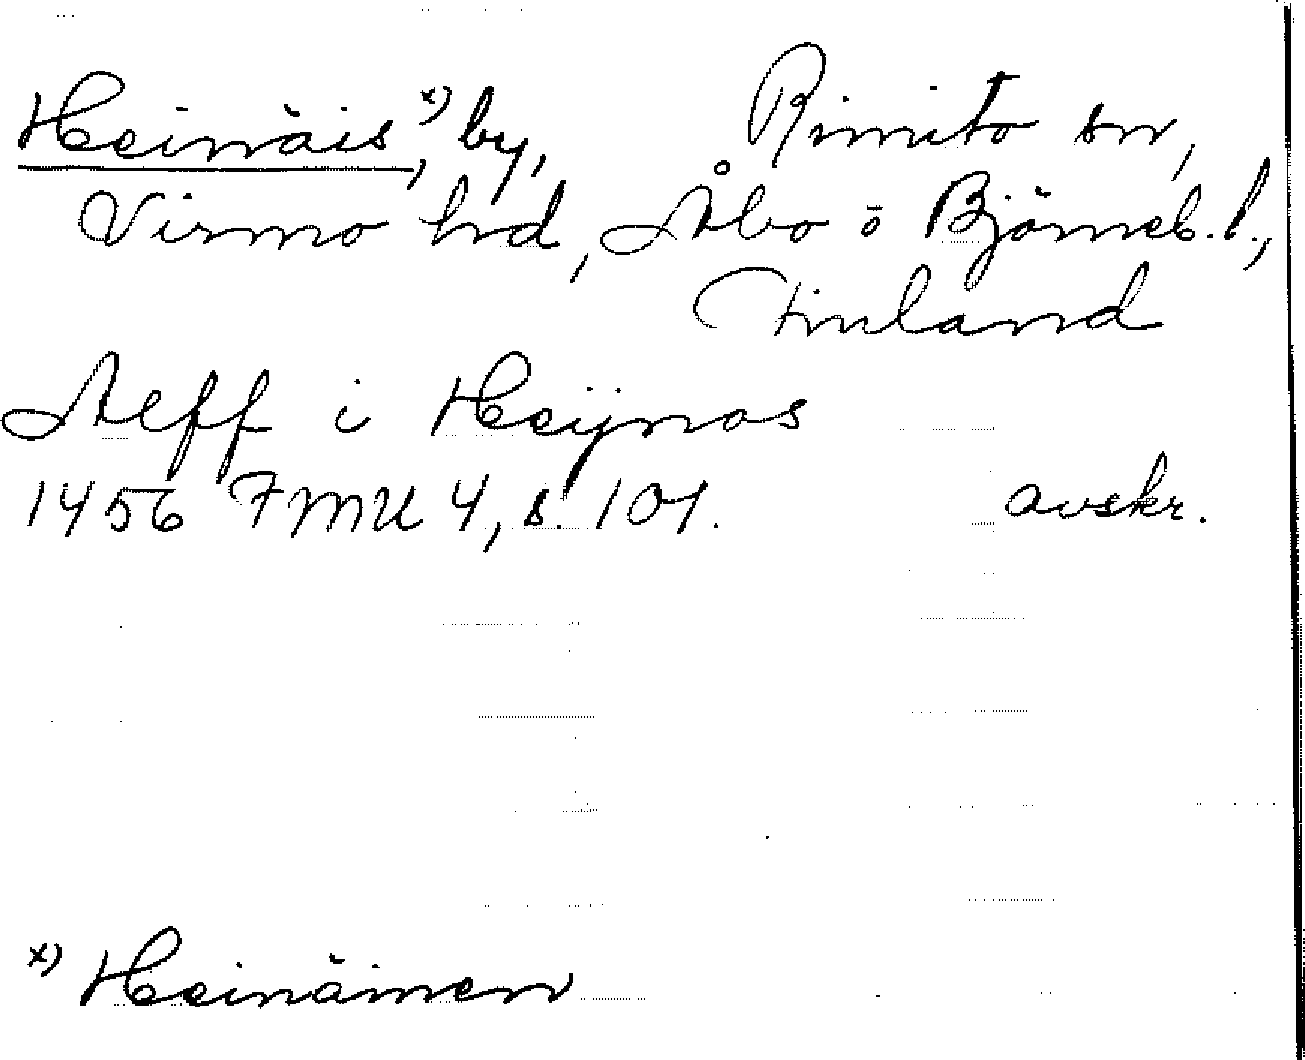 Heinäis,x) by, Rimito sn,
Virmo hd, Åbo o Björneb. l.,
Finland
Aleff i Heijnas
1456 FMU 4, s. 101. avskr.
x) Heinäinen